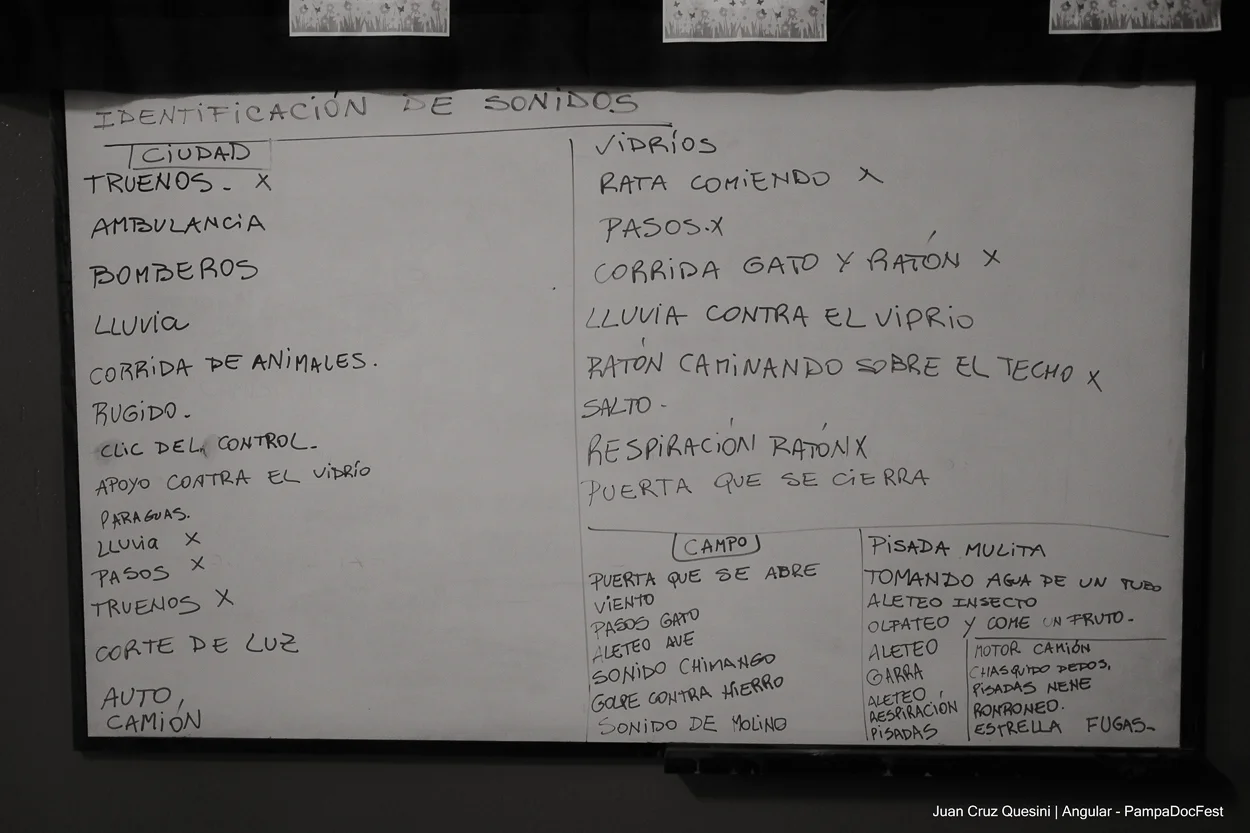 IDENTIFICACIÓN DE SONIDOS
CIUDAD
TRUENOS - X
AMBULANCIA
BOMBEROS
LLUVIA
CORRIDA DE ANIMALES.
RUGIDO -
CLIC DEL CONTROL -
APOYO CONTRA EL VIDRÍO
PARAGUAS.
LLUVIA X
PASOS X
TRUENOS X
CORTE DE LUZ
AUTO,
CAMIÓN
VIDRÍOS
RATA COMIENDO X
PASOS.X
CORRIDA GATO Y RATÓN X
LLUVIA CONTRA EL VIPRIO
RATÓN CAMINANDO SOBRE EL TECHO X
SALTO -
RESPIRACIÓN RATÓN X
PUERTA QUE SE CIERRA
CAMPO
PUERTA QUE SE ABRE
VIENTO
PASOS GATO
ALETEO AVE
SONIDO CHIMANGO
GOLPE CONTRA HIERRO
SONIDO DE MOLINO
PISADA MULITA
TOMANDO AGUA DE UN TUBO
ALETEO INSECTO
OLFATEO Y COME UN FRUTO -
ALETEO
GARRA
ALETEO
RESPIRACIÓN
PISADAS
MOTOR CAMIÓN
CHASQUIDO DEDOS,
PISADAS NENE
RONRONEO.
ESTRELLA FUGAS -
Juan Cruz Quesini | Angular - PampaDocFest